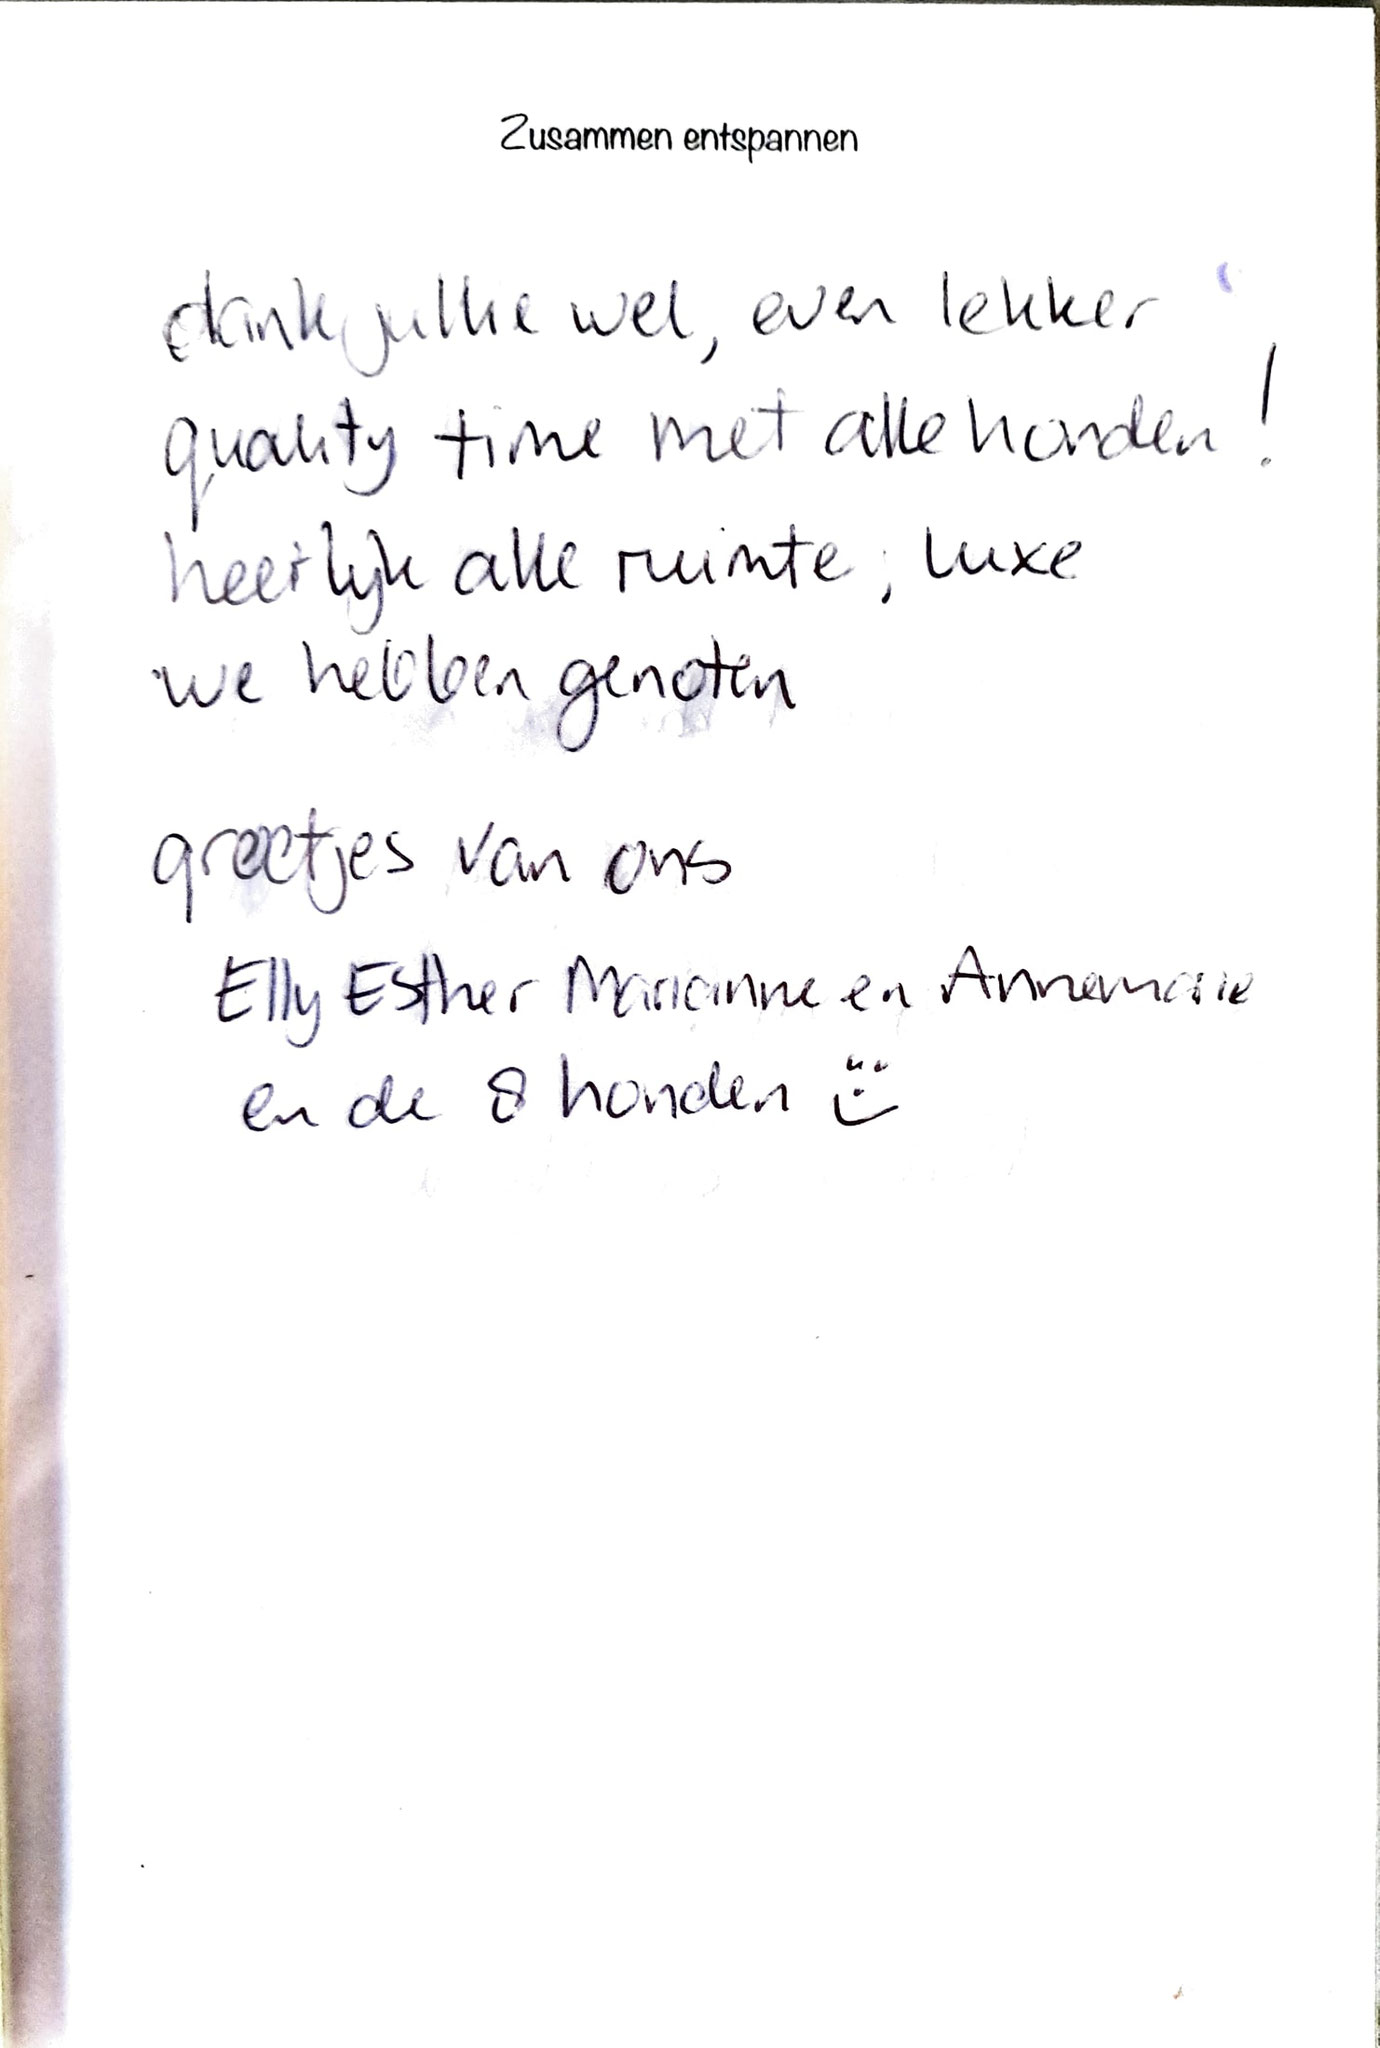 Zusammen entspannen
dank jullie wel, even lekker
quality time met alle honden!
heerlijk alle ruimte, luxe
we hebben genoten
groetjes van ons
Elly Esther Marianne en Annemarie
en de 8 honden